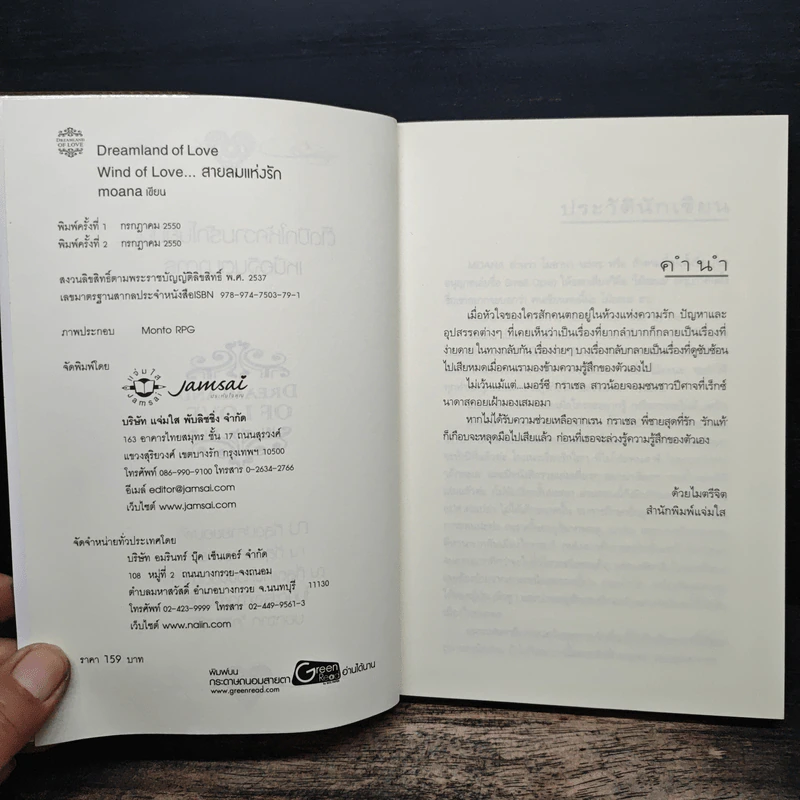 DREAMLAND
OF LOVE
Dreamland of Love
Wind of Love... สายลมแห่งรัก
moana เขียน
พิมพ์ครั้งที่ 1 กรกฎาคม 2550
พิมพ์ครั้งที่ 2 กรกฎาคม 2550
สงวนลิขสิทธิ์ตามพระราชบัญญัติลิขสิทธิ์ พ.ศ. 2537
เลขมาตรฐานสากลประจำหนังสือISBN 978-974-7503-79-1
ภาพประกอบ Monto RPG
จัดพิมพ์โดย
แจ่มใส
Jamsai
Jamsai
บริษัท แจ่มใส พับลิชชิ่ง จำกัด
163 อาคารไทยสมุทร ชั้น 17 ถนนสุรวงศ์
แขวงสุริยวงศ์ เขตบางรัก กรุงเทพฯ 10500
โทรศัพท์ 086-990-9100 โทรสาร 0-2634-2766
อีเมล์ editor@jamsai.com
เว็บไซต์ www.jamsai.com
จัดจำหน่ายทั่วประเทศโดย
บริษัท อมรินทร์ บุ๊ค เซ็นเตอร์ จำกัด
108 หมู่ที่ 2 ถนนบางกรวย-จงถนอม
ตำบลมหาสวัสดิ์ อำเภอบางกรวย จ.นนทบุรี 11130
โทรศัพท์ 02-423-9999 โทรสาร 02-449-9561-3
เว็บไซต์ www.naiin.com
ราคา 159 บาท
พิมพ์บน
กระดาษถนอมสายตา
www.greenread.com
Green
Read
อ่านได้นาน
คำนำ
เมื่อหัวใจของใครสักคนตกอยู่ในห้วงแห่งความรัก ปัญหาและ
อุปสรรคต่างๆ ที่เคยเห็นว่าเป็นเรื่องที่ยากลำบากก็กลายเป็นเรื่องที่
ง่ายดาย ในทางกลับกัน เรื่องง่ายๆ บางเรื่องกลับกลายเป็นเรื่องที่ดูซับซ้อน
ไปเสียหมดเมื่อคนเรามองข้ามความรู้สึกของตัวเองไป
ไม่เว้นแม้แต่...เมอร์ซี กราเซล สาวน้อยจอมซนชาวปีศาจที่เร็กซ์
นาดาสคอยเฝ้ามองเสมอมา
หากไม่ได้รับความช่วยเหลือจากเรน กราเซล พี่ชายสุดที่รัก รักแท้
ก็เกือบจะหลุดมือไปเสียแล้ว ก่อนที่เธอจะล่วงรู้ความรู้สึกของตัวเอง
ด้วยไมตรีจิต
สำนักพิมพ์แจ่มใส